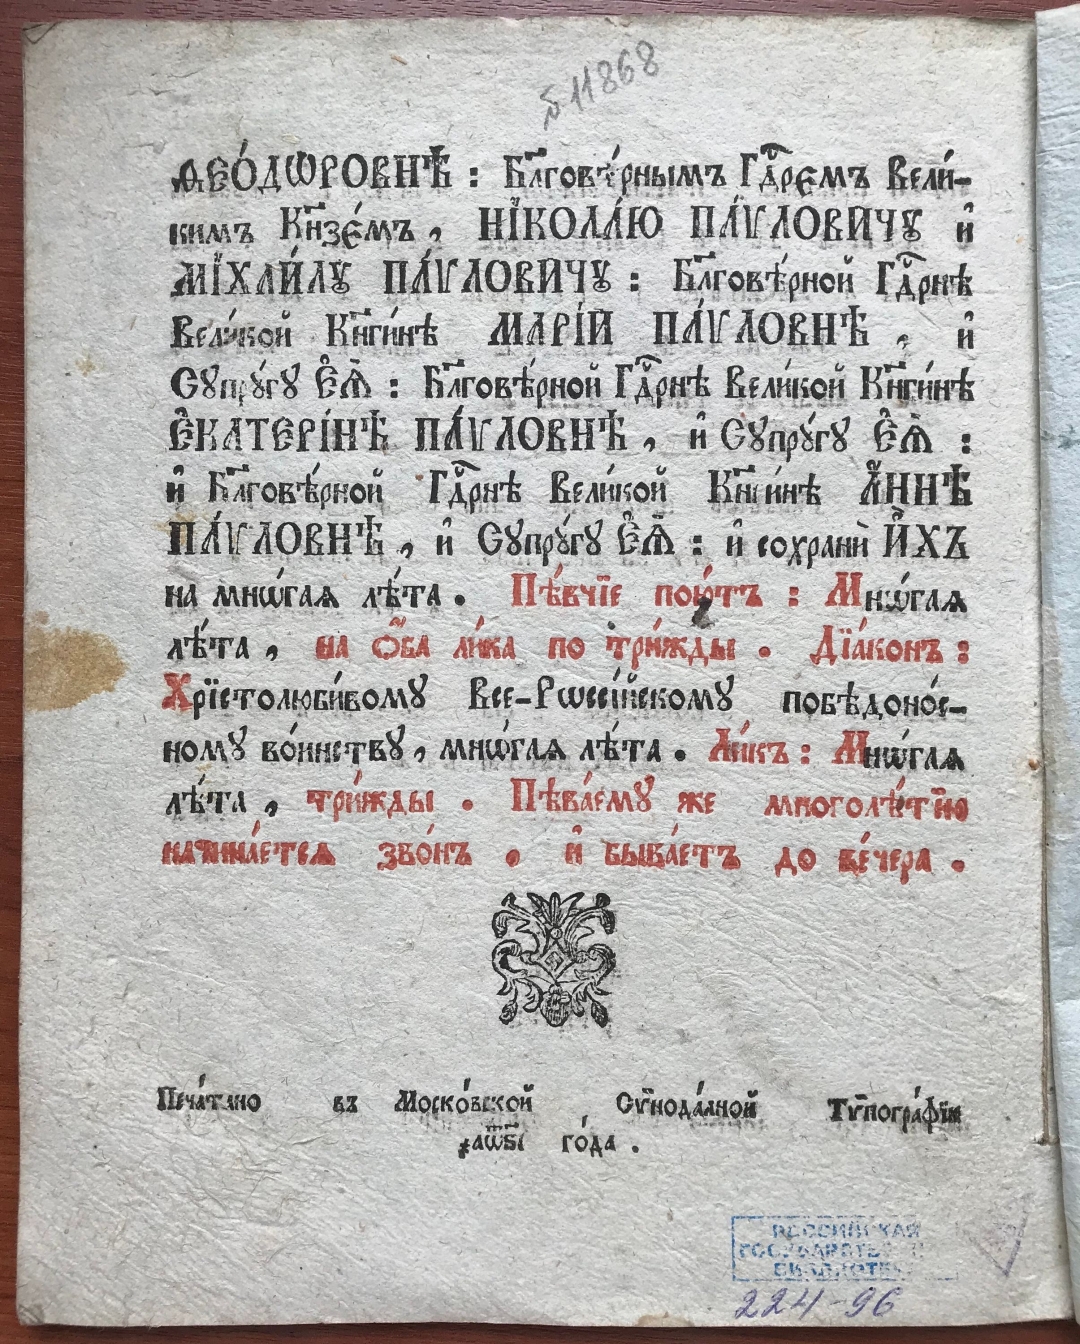 № 11868
Ѳео́дѡровнѣ : Бл҃говѣ́рнымъ Гдⷭ҇рємъ Вели́-
кимъ Кн҃зє́мъ , НІКОЛА́Ю ПА́ѴЛОВИЧꙋ и҆
МІХАИ́Лꙋ ПА́ѴЛОВИЧꙋ : Бл҃говѣ́рной Гдⷭ҇рнѣ
Вели́кой Кн҃ги́нѣ МАРІ́И ПА́ѴЛОВНѢ , и҆
Сꙋпрꙋ́гꙋ Є҆Ѧ̀ : Бл҃говѣ́рной Гдⷭ҇рнѣ Вели́кой Кн҃ги́нѣ
Є҆КАТЕРІ́НѢ ПА́ѴЛОВНѢ , и҆ Сꙋпрꙋ́гꙋ Є҆Ѧ̀ :
и҆ Бл҃говѣ́рной Гдⷭ҇рнѣ Вели́кой Кн҃ги́нѣ А҆́ННѢ
ПА́ѴЛОВНѢ , и҆ Сꙋпрꙋ́гꙋ Є҆Ѧ̀ : и҆ сохранѝ И҆́ХЪ
на мнѡ́гаѧ лѣ́та . Пѣ́вчїе пою́тъ : Мнѡ́гаѧ
лѣ́та , на ѻ҆́ба ли́ка по три́жды . Дїа́конъ :
Хрїстолюби́вомꙋ Все-Рѡссі́йскомꙋ побѣдоно́с-
номꙋ во́инствꙋ , мнѡ́гаѧ лѣ́та . Ли́къ : Мнѡ́гаѧ
лѣ́та , три́жды . Пѣва́емꙋ же многолѣ́тїю
начина́етсѧ зво́нъ , и҆ быва́етъ до ве́чера .
Печа́тано въ Моско́вской Сѵнода́лной Тѵпогра́фїи
҂аѿ҃ві го́да .
РОССИЙСКАЯ
ГОСУДАРСТВЕНН
БИБЛИОТЕК
224-96